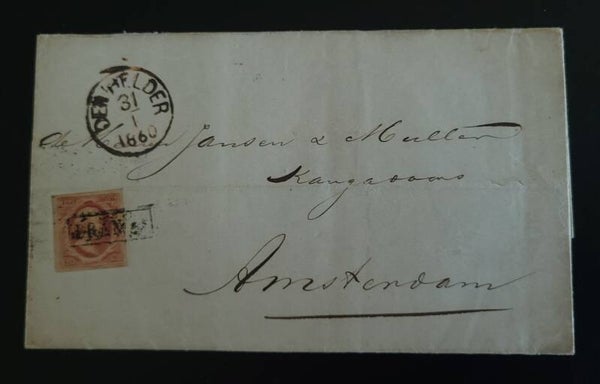 DEN HELDER
31
1
1860
de Jansen & Muller
Amsterdam
FRANCO